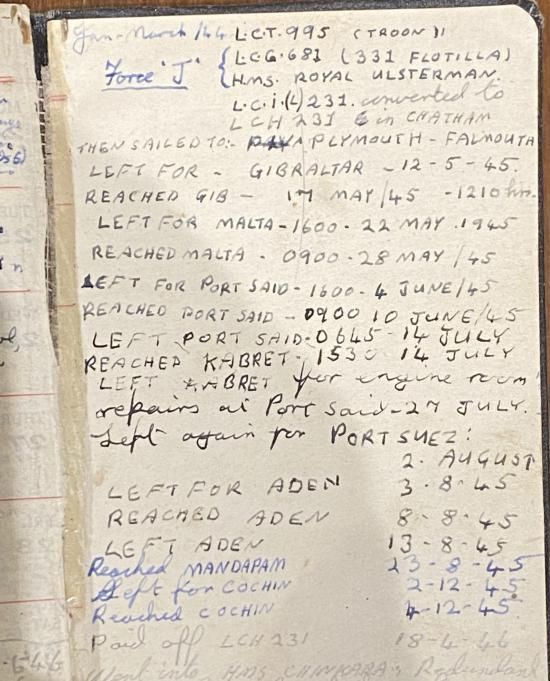 Jan-March/44 L.C.T. 995 (TROON)
Force 'J' { L.C.G. 681 (331 FLOTILLA)
H.M.S. ROYAL ULSTERMAN.
L.C.i.(L) 231. converted to
LCH 231 in CHATHAM
THEN SAILED TO:- PLYMOUTH - FALMOUTH
LEFT FOR - GIBRALTAR - 12-5-45.
REACHED GIB - 17 MAY/45 - 1210 hrs.
LEFT FOR MALTA - 1600 - 22 MAY. 1945
REACHED MALTA - 0900 - 28 MAY/45
LEFT FOR PORT SAID - 1600 - 4 JUNE/45
REACHED PORT SAID - 0900 10 JUNE/45
LEFT PORT SAID - 0645 - 14 JULY
REACHED KABRET - 1530 14 JULY
LEFT KABRET for engine room
repairs at Port Said - 27 JULY.
Left again for PORT SUEZ:
2. AUGUST
LEFT FOR ADEN 3-8-45
REACHED ADEN 8-8-45
LEFT ADEN 13-8-45
Reached MANDAPAM 23-8-45
Left for COCHIN 2-12-45
Reached COCHIN 4-12-45
Paid off LCH 231 18-4-46
Went into HMS CHINKARA: Redundant